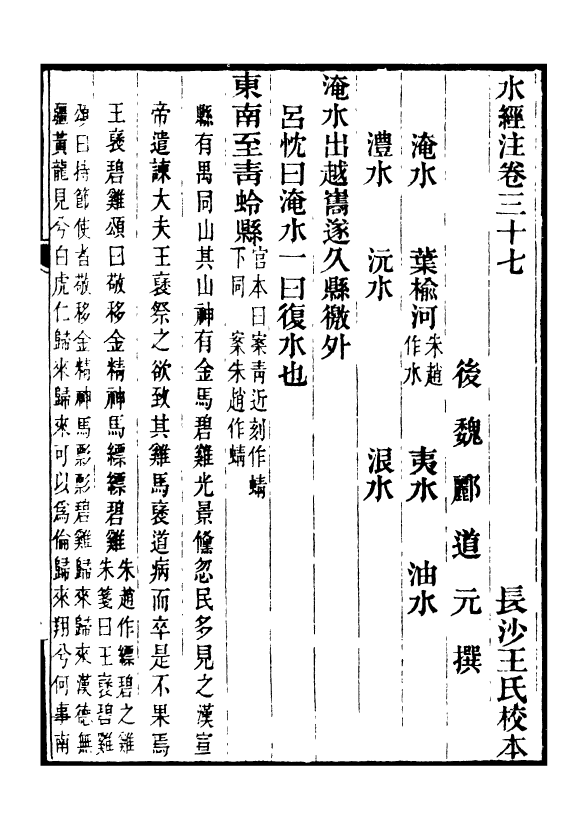 水經注卷三十七　長沙王氏校本
後魏酈道元撰
淹水　葉榆河朱趙作水　夷水　油水
澧水　沅水　泿水
淹水出越巂遂久縣徼外
呂忱曰淹水一曰復水也
東南至靑蛉縣官本曰案靑近刻作蜻案朱趙作蜻下同
縣有禺同山其山神有金馬碧雞光景儵忽民多見之漢宣
帝遣諫大夫王襃祭之欲致其雞馬襃道病而卒是不果焉
王襃碧雞頌曰敬移金精神馬縹縹碧雞朱趙作縹碧之雞朱箋曰王襃碧雞
頌曰持節使者敬移金精神馬影影碧雞歸來歸來漢德無
疆黃龍見兮白虎仁歸來歸來可以爲倫歸來翔兮何事南